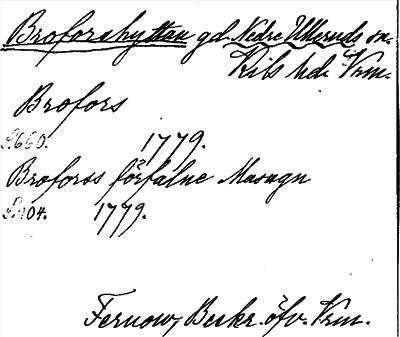 Broforshyttan gd. Nedre Ulleruds sn.
Kils hd. Vrm.
Brofors
S. 660. 1779.
Broforss förfalne Masugn
S. 404. 1779.
Fernow, Beskr. öfv. Vrm.